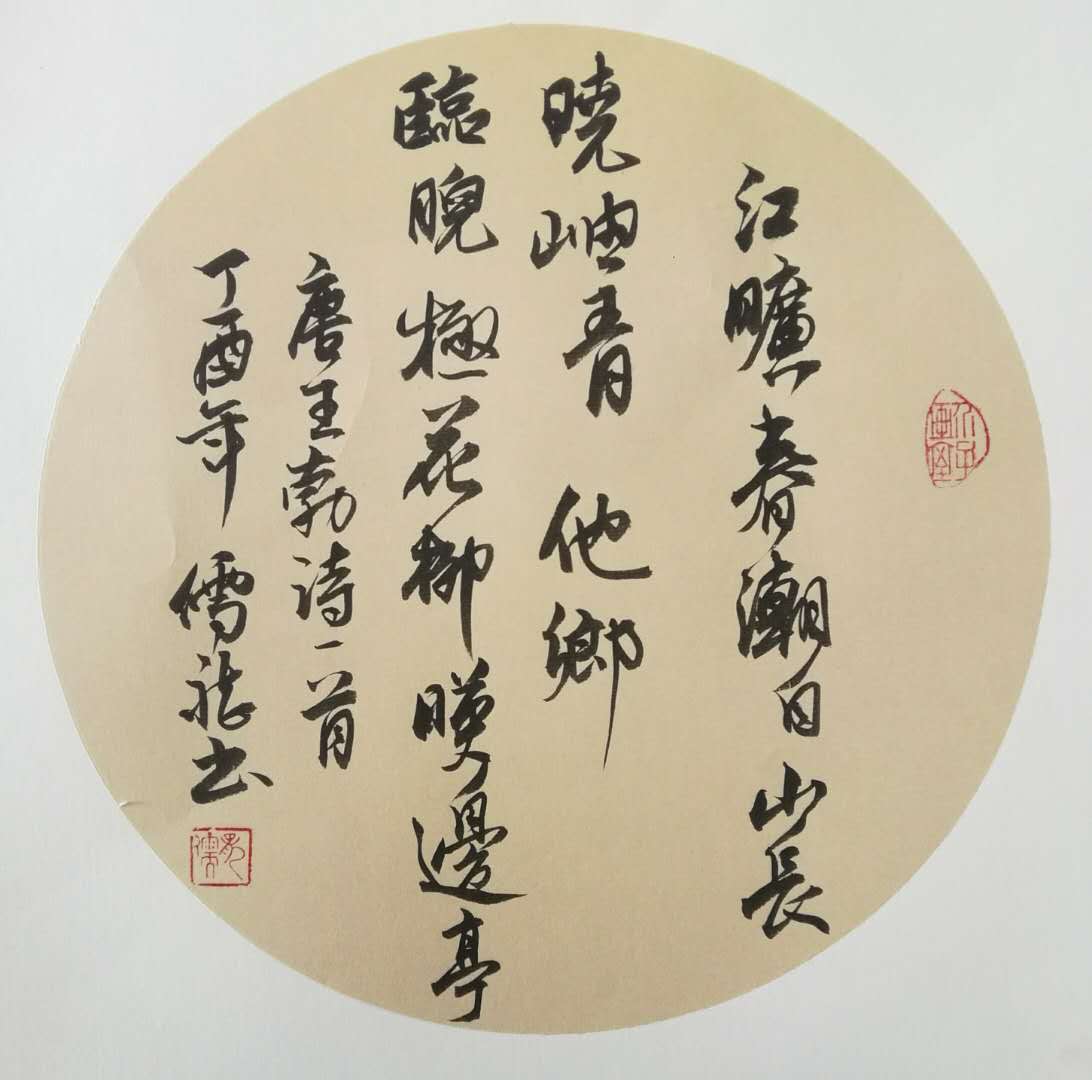 江曠春潮白山長
曉岫青他鄉
臨睨極花柳暎邊亭
唐王勃诗一首
丁酉年儒龍书